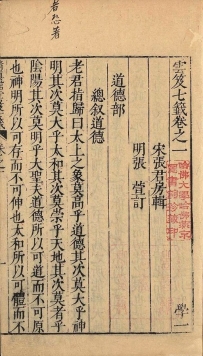 雲笈七籤卷之一
宋張君房輯
明張萱訂
道德部
總敘道德
老君指歸曰太上之象莫高乎道德其次莫大乎神
明其次莫大乎太和其次莫崇乎天地其次莫著乎
陰陽其次莫明乎大聖夫道德所以可道而不可原
也神明所以可存而不可伸也太和所以可體而不
學一